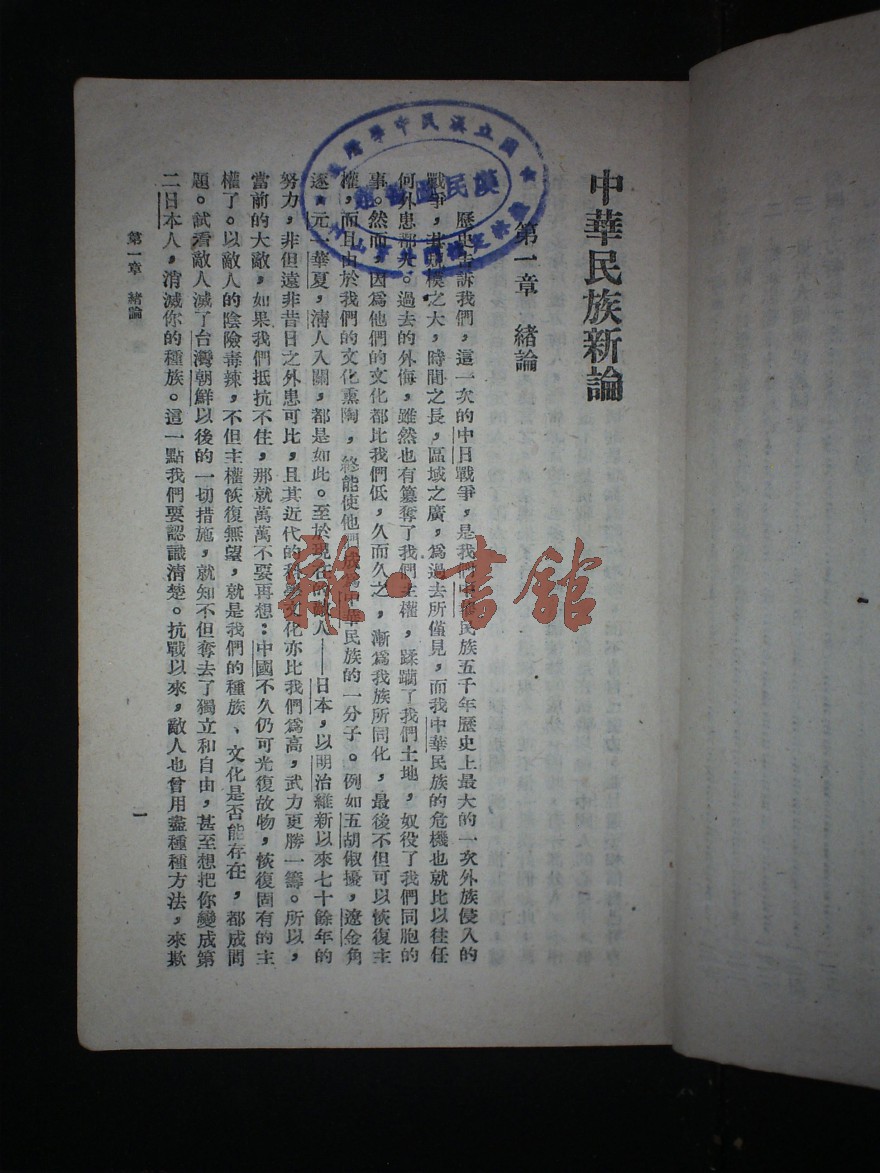 中華民族新論
第一章　緒論
歷史告訴我們，這一次的中日戰爭，是我們中華民族五千年歷史上最大的一次外族侵入的
戰爭，其規模之大，時間之長，區域之廣，爲過去所僅見，而我中華民族的危機也就比以往任
何外患都大。過去的外侮，雖然也有簒奪了我們主權，蹂躪了我們土地，奴役了我們同胞的
事。然而，因爲他們的文化都比我們低，久而久之，漸爲我族所同化，最後不但可以恢復主
權，而且由於我們的文化熏陶，終能使他們成爲中華民族的一分子。例如五胡俶擾，遼金角
逐，元一華夏，淸人入關，都是如此。至於現在的敵人——日本，以明治維新以來七十餘年的
努力，非但遠非昔日之外患可比，且其近代的科學文化亦比我們爲高，武力更勝一籌。所以，
當前的大敵，如果我們抵抗不住，那就萬萬不要再想：中國不久仍可光復故物，恢復固有的主
權了。以敵人的陰險毒辣，不但主權恢復無望，就是我們的種族、文化是否能存在，都成問
題。試看敵人滅了台灣朝鮮以後的一切措施，就知不但奪去了獨立和自由，甚至想把你變成第
二日本人，消滅你的種族。這一點我們要認識清楚。抗戰以來，敵人也曾用盡種種方法，來欺
第一章　緒論
一
國立漢民中學
漢民圖書
雜·書館